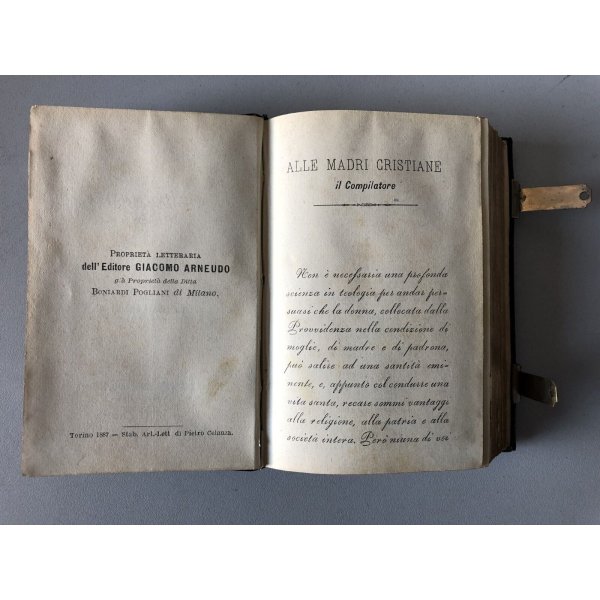 PROPRIETÀ LETTERARIA
dell'Editore GIACOMO ARNEUDO
già Proprietà della Ditta
BONIARDI POGLIANI di Milano.
Torino 1887 — Stab. Art.-Lett. di Pietro Celanza.
ALLE MADRI CRISTIANE
il Compilatore
Non è necessaria una profonda
scienza in teologia per andar per-
suasi che la donna, collocata dalla
Provvidenza nella condizione di
moglie, di madre e di padrona,
può salire ad una santità emi-
nente, e, appunto col condurre una
vita santa, recare sommi vantaggi
alla religione, alla patria e alla
società intera. Però niuna di voi